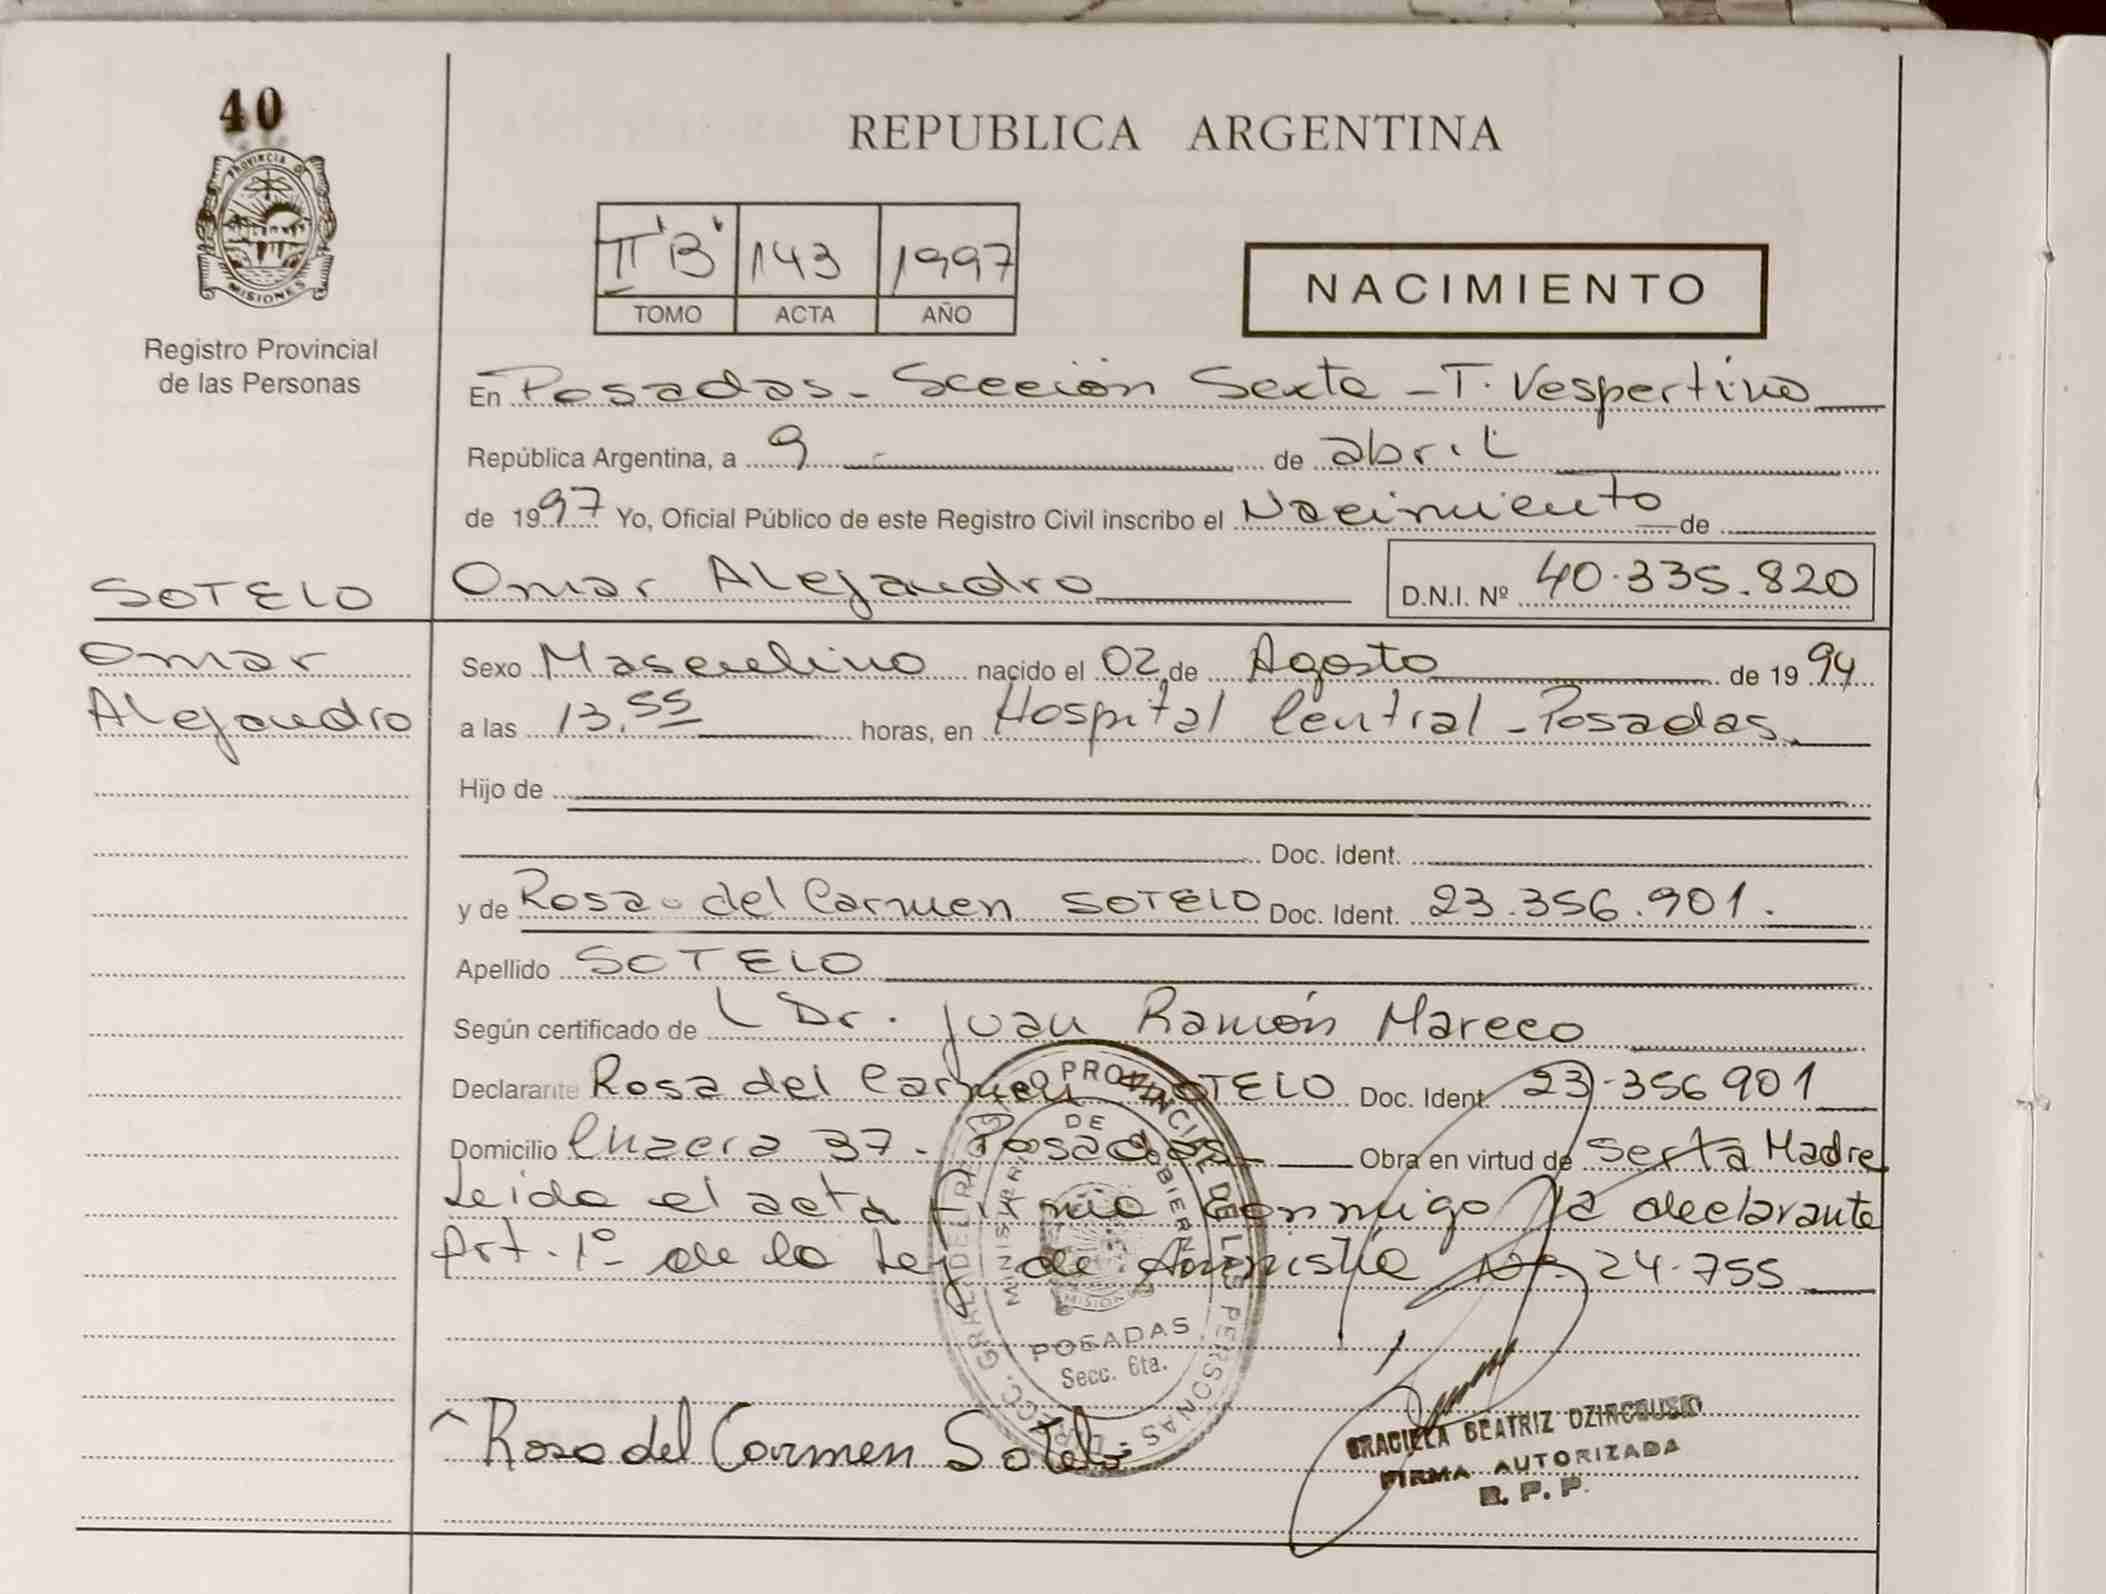 40
PROVINCIA DE
MISIONES
Registro Provincial
de las Personas
REPUBLICA ARGENTINA
II "B" 143 1997
TOMO ACTA AÑO
NACIMIENTO
En Posadas - Sección Sexta - T. Vespertino
República Argentina, a 9 de abril
de 1997 Yo, Oficial Público de este Registro Civil inscribo el Nacimiento de
SOTELO Omar Alejandro D.N.I. Nº 40.335.820
Omar Sexo Masculino nacido el 02 de Agosto de 1994
Alejandro a las 13,55 horas, en Hospital Central - Posadas
Hijo de
Doc. Ident.
y de Rosa del Carmen SOTELO Doc. Ident. 23.356.901.
Apellido SOTELO
Según certificado de Dr. Juan Ramón Mareco
Declarante Rosa del Carmen SOTELO Doc. Ident. 23.356901
Domicilio 37 - Posadas Obra en virtud de ser la Madre
Leida el acta firma conmigo la declarante
Art. 1º de la Ley de Amnistia Nº 24.755
REGISTRO PROVINCIAL DE LAS PERSONAS
MINISTERIO DE GOBIERNO
MISIONES
POSADAS
Secc. 6ta.
Rosa del Carmen Sotelo
GRACIELA BEATRIZ
FIRMA AUTORIZADA
R. P. P.